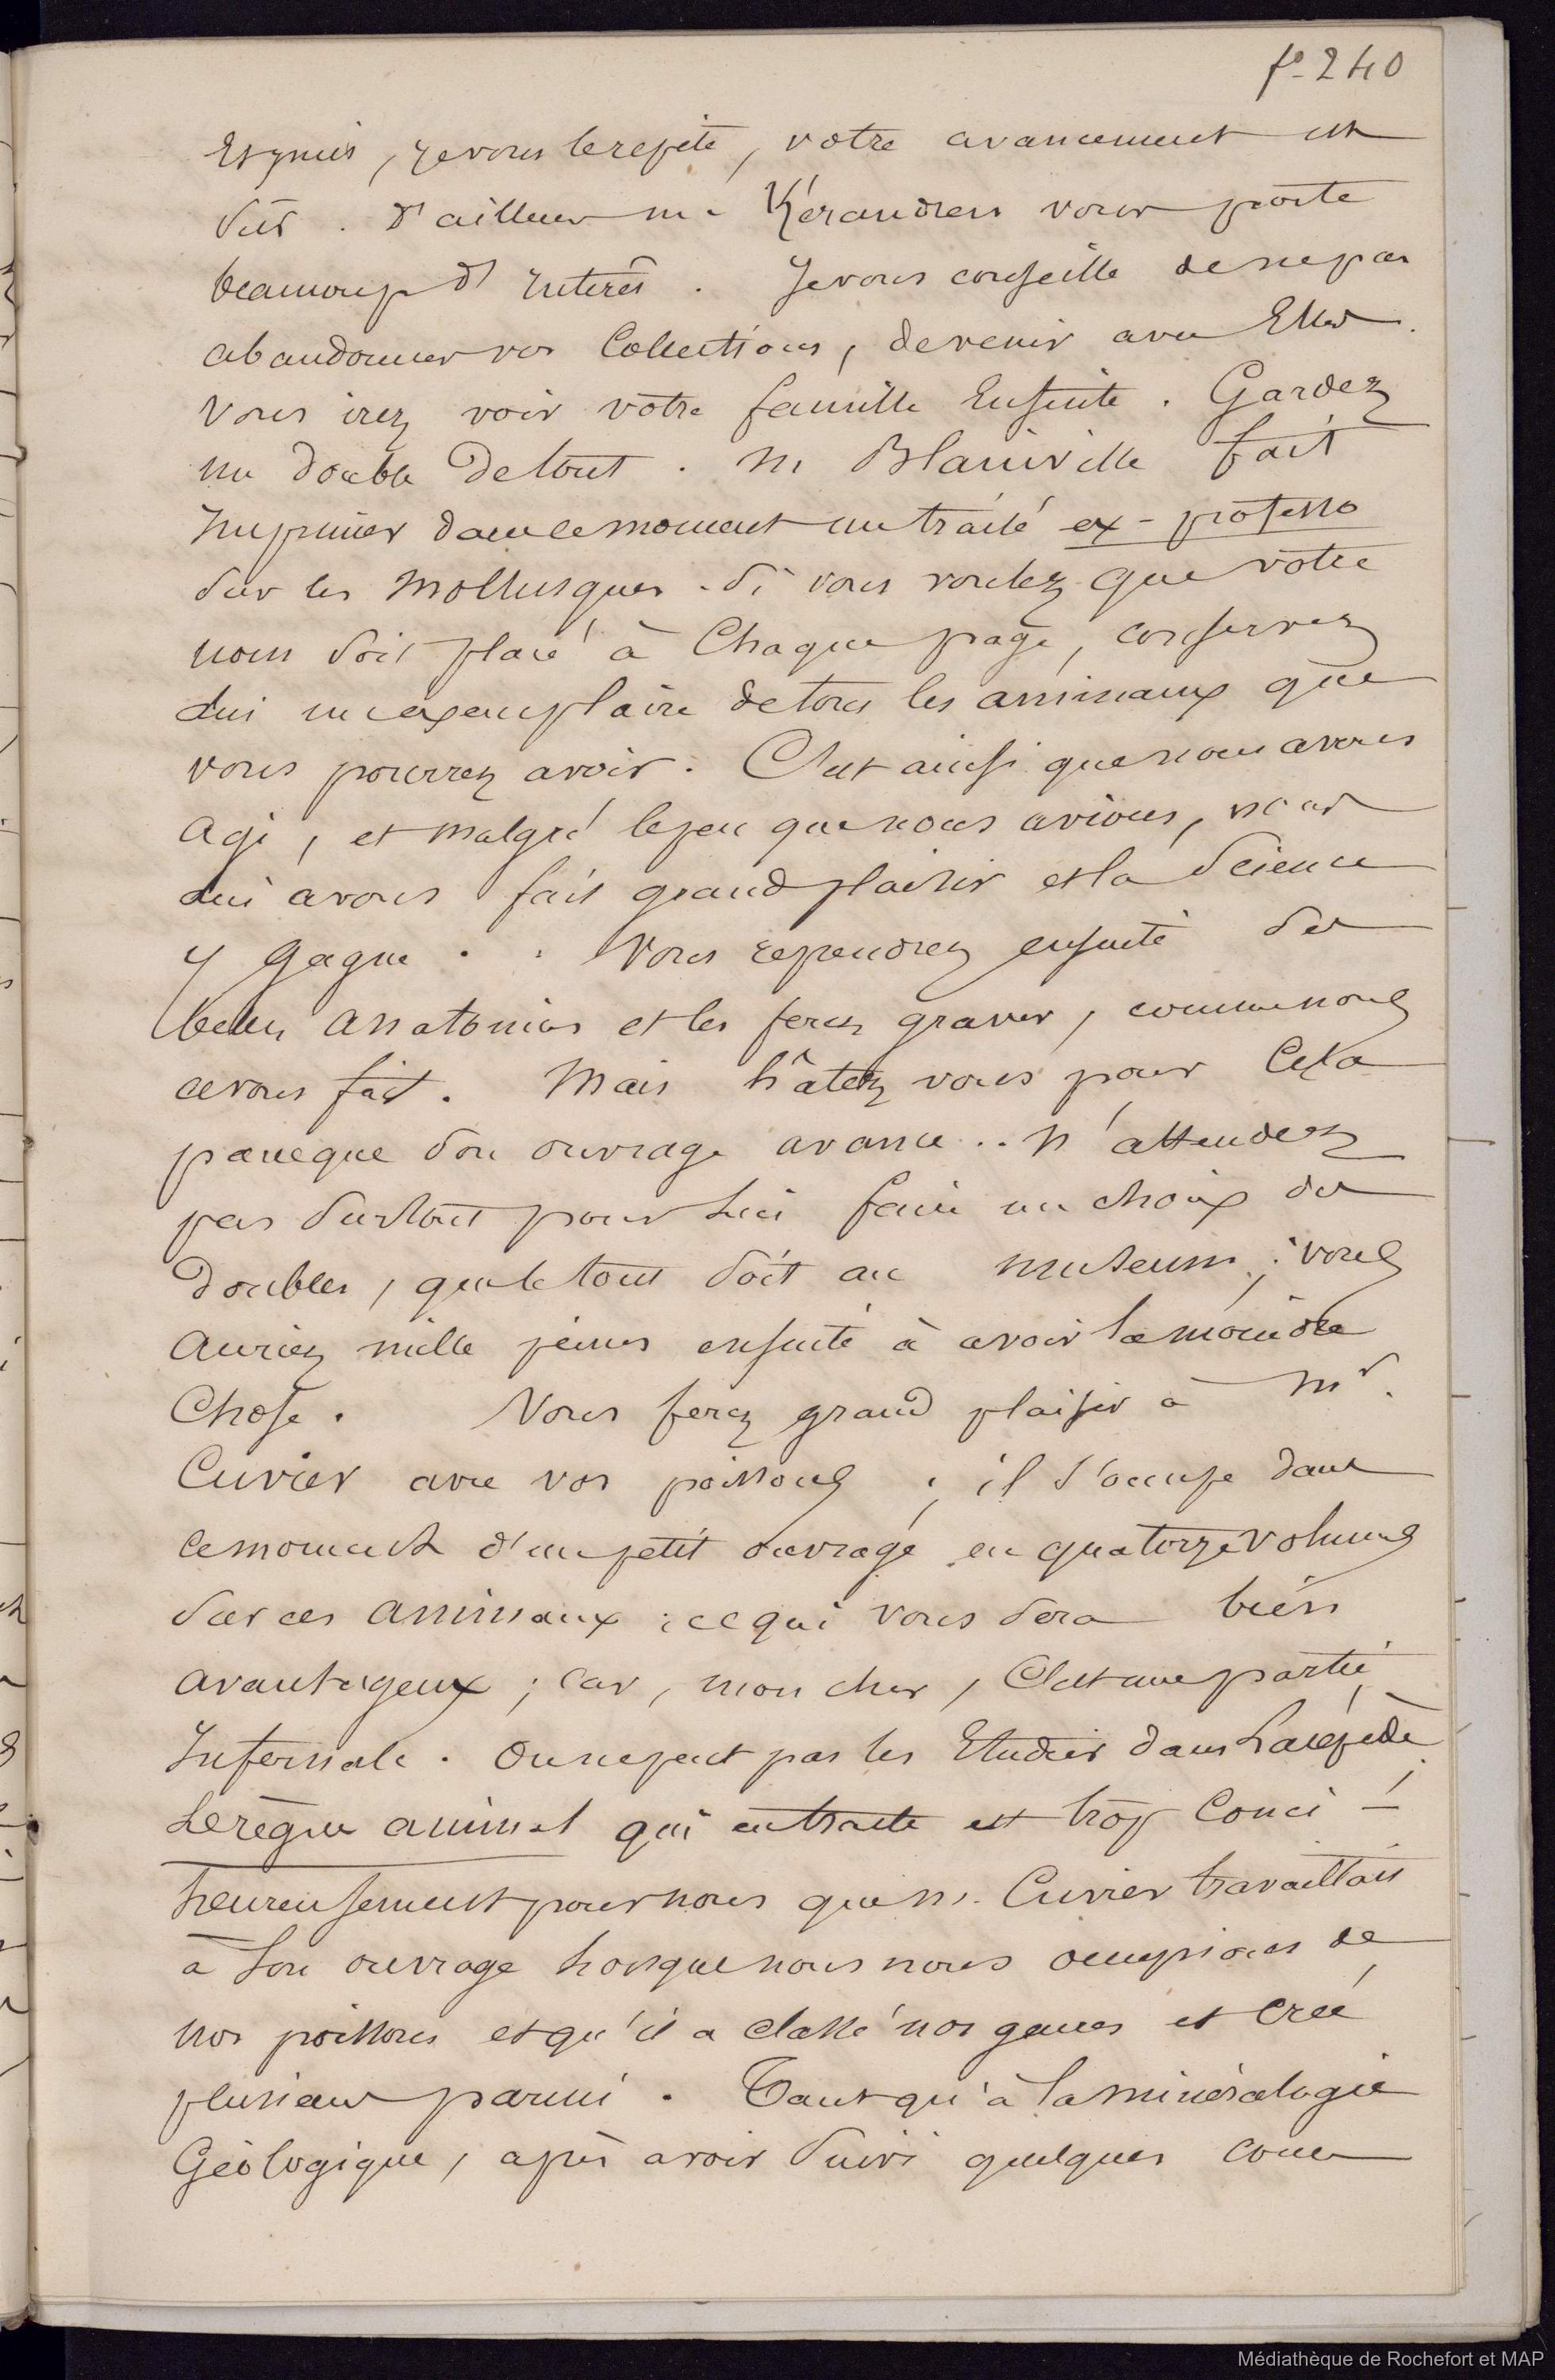 fo. 240
Et puis, je vous le repète, votre avancement est
sûr. D'ailleurs m. Kérandren vous porte
beaucoup d'Intérêt. Je vous conseille de ne pas
abandonner vos Collections, de venir avec Elles.
Vous irez voir votre famille Ensuite. Gardez
un double de tout. M. Blainville fait
Imprimer dans ce moment un traité ex-professo
sur les Mollusques. Si vous voulez que votre
nom soit placé à Chaque page, conservez
lui un exemplaire de tous les animaux que
vous pourrez avoir. C'est ainsi que nous avons
agi, et malgré le peu que nous avions, nous
lui avons fait grand plaisir et la Science
y gagne. Vous reprendrez ensuite ses
belles anatomies et les ferez graver, comme nous
avons fait. Mais hâtez vous pour Cela
parceque son ouvrage avance.. N'attendez
pas surtout pour lui faire un choix de
doubles, que le tout soit au museum; vous
auriez mille peines ensuite à avoir la moindre
Chose. Vous ferez grand plaisir à Mr.
Cuvier avec vos poissons; il s'occupe dans
ce moment d'un petit ouvrage en quatorze volumes
sur ces animaux; ce qui vous sera bien
avantageux; Car, mon cher, C'est une partie
Infernale. On ne peut pas les Etudier dans Lacépède;
Le règne animal qui en traite est trop Conci -
heureusement pour nous que m. Cuvier travaillait
à son ouvrage lorsque nous nous occupions de
nos poissons et qu'il a classé nos genres et créé
plusieurs parmi. Tant qu'à la minéralogie
Géologique, après avoir suivi quelques cours
Médiathèque de Rochefort et MAP